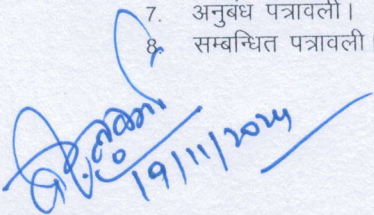 7. अनुबंध पत्रावली।
8. सम्बन्धित पत्रावली।
19/11/2024